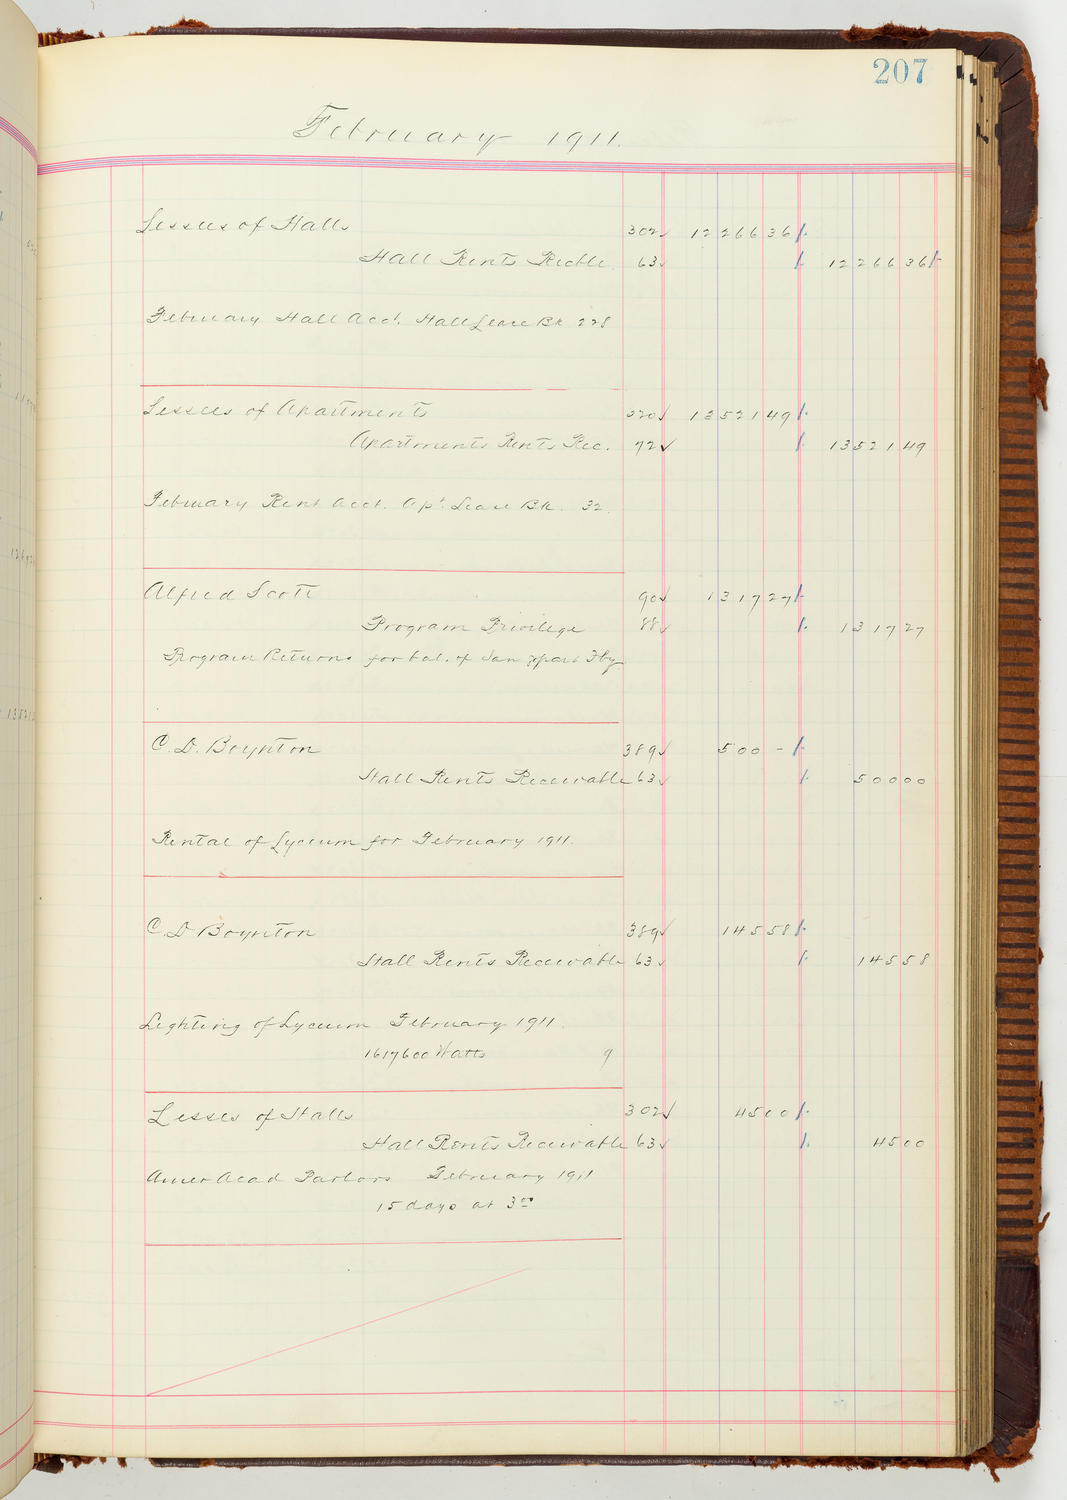 207
February 1911.
Lessees of Halls 302 ✓ 12266 36
Hall Rents Recble. 63 ✓ 12266 36
February Hall Acct. Hall Lease Bk 228
Lessees of Apartments 320 ✓ 13521 49
Apartments Rents Rec. 72 ✓ 13521 49
February Rent Acct. Apt. Lease Bk. 32.
Alfred Scott 90 ✓ 1317 27
Program Privilege 88 ✓ 1317 27
Program Returns for bal. of Jan & part Feby
C. D. Boynton 389 ✓ 500 -
Hall Rents Receivable 63 ✓ 500 00
Rental of Lyceum for February 1911.
C. D. Boynton 389 ✓ 145 58
Hall Rents Receivable 63 ✓ 145 58
Lighting of Lyceum February 1911.
1617600 Watts 9
Lesses of Halls 302 ✓ 45 00
Hall Rents Receivable 63 ✓ 45 00
Amer Acad Parlors February 1911
15 days at 3 00